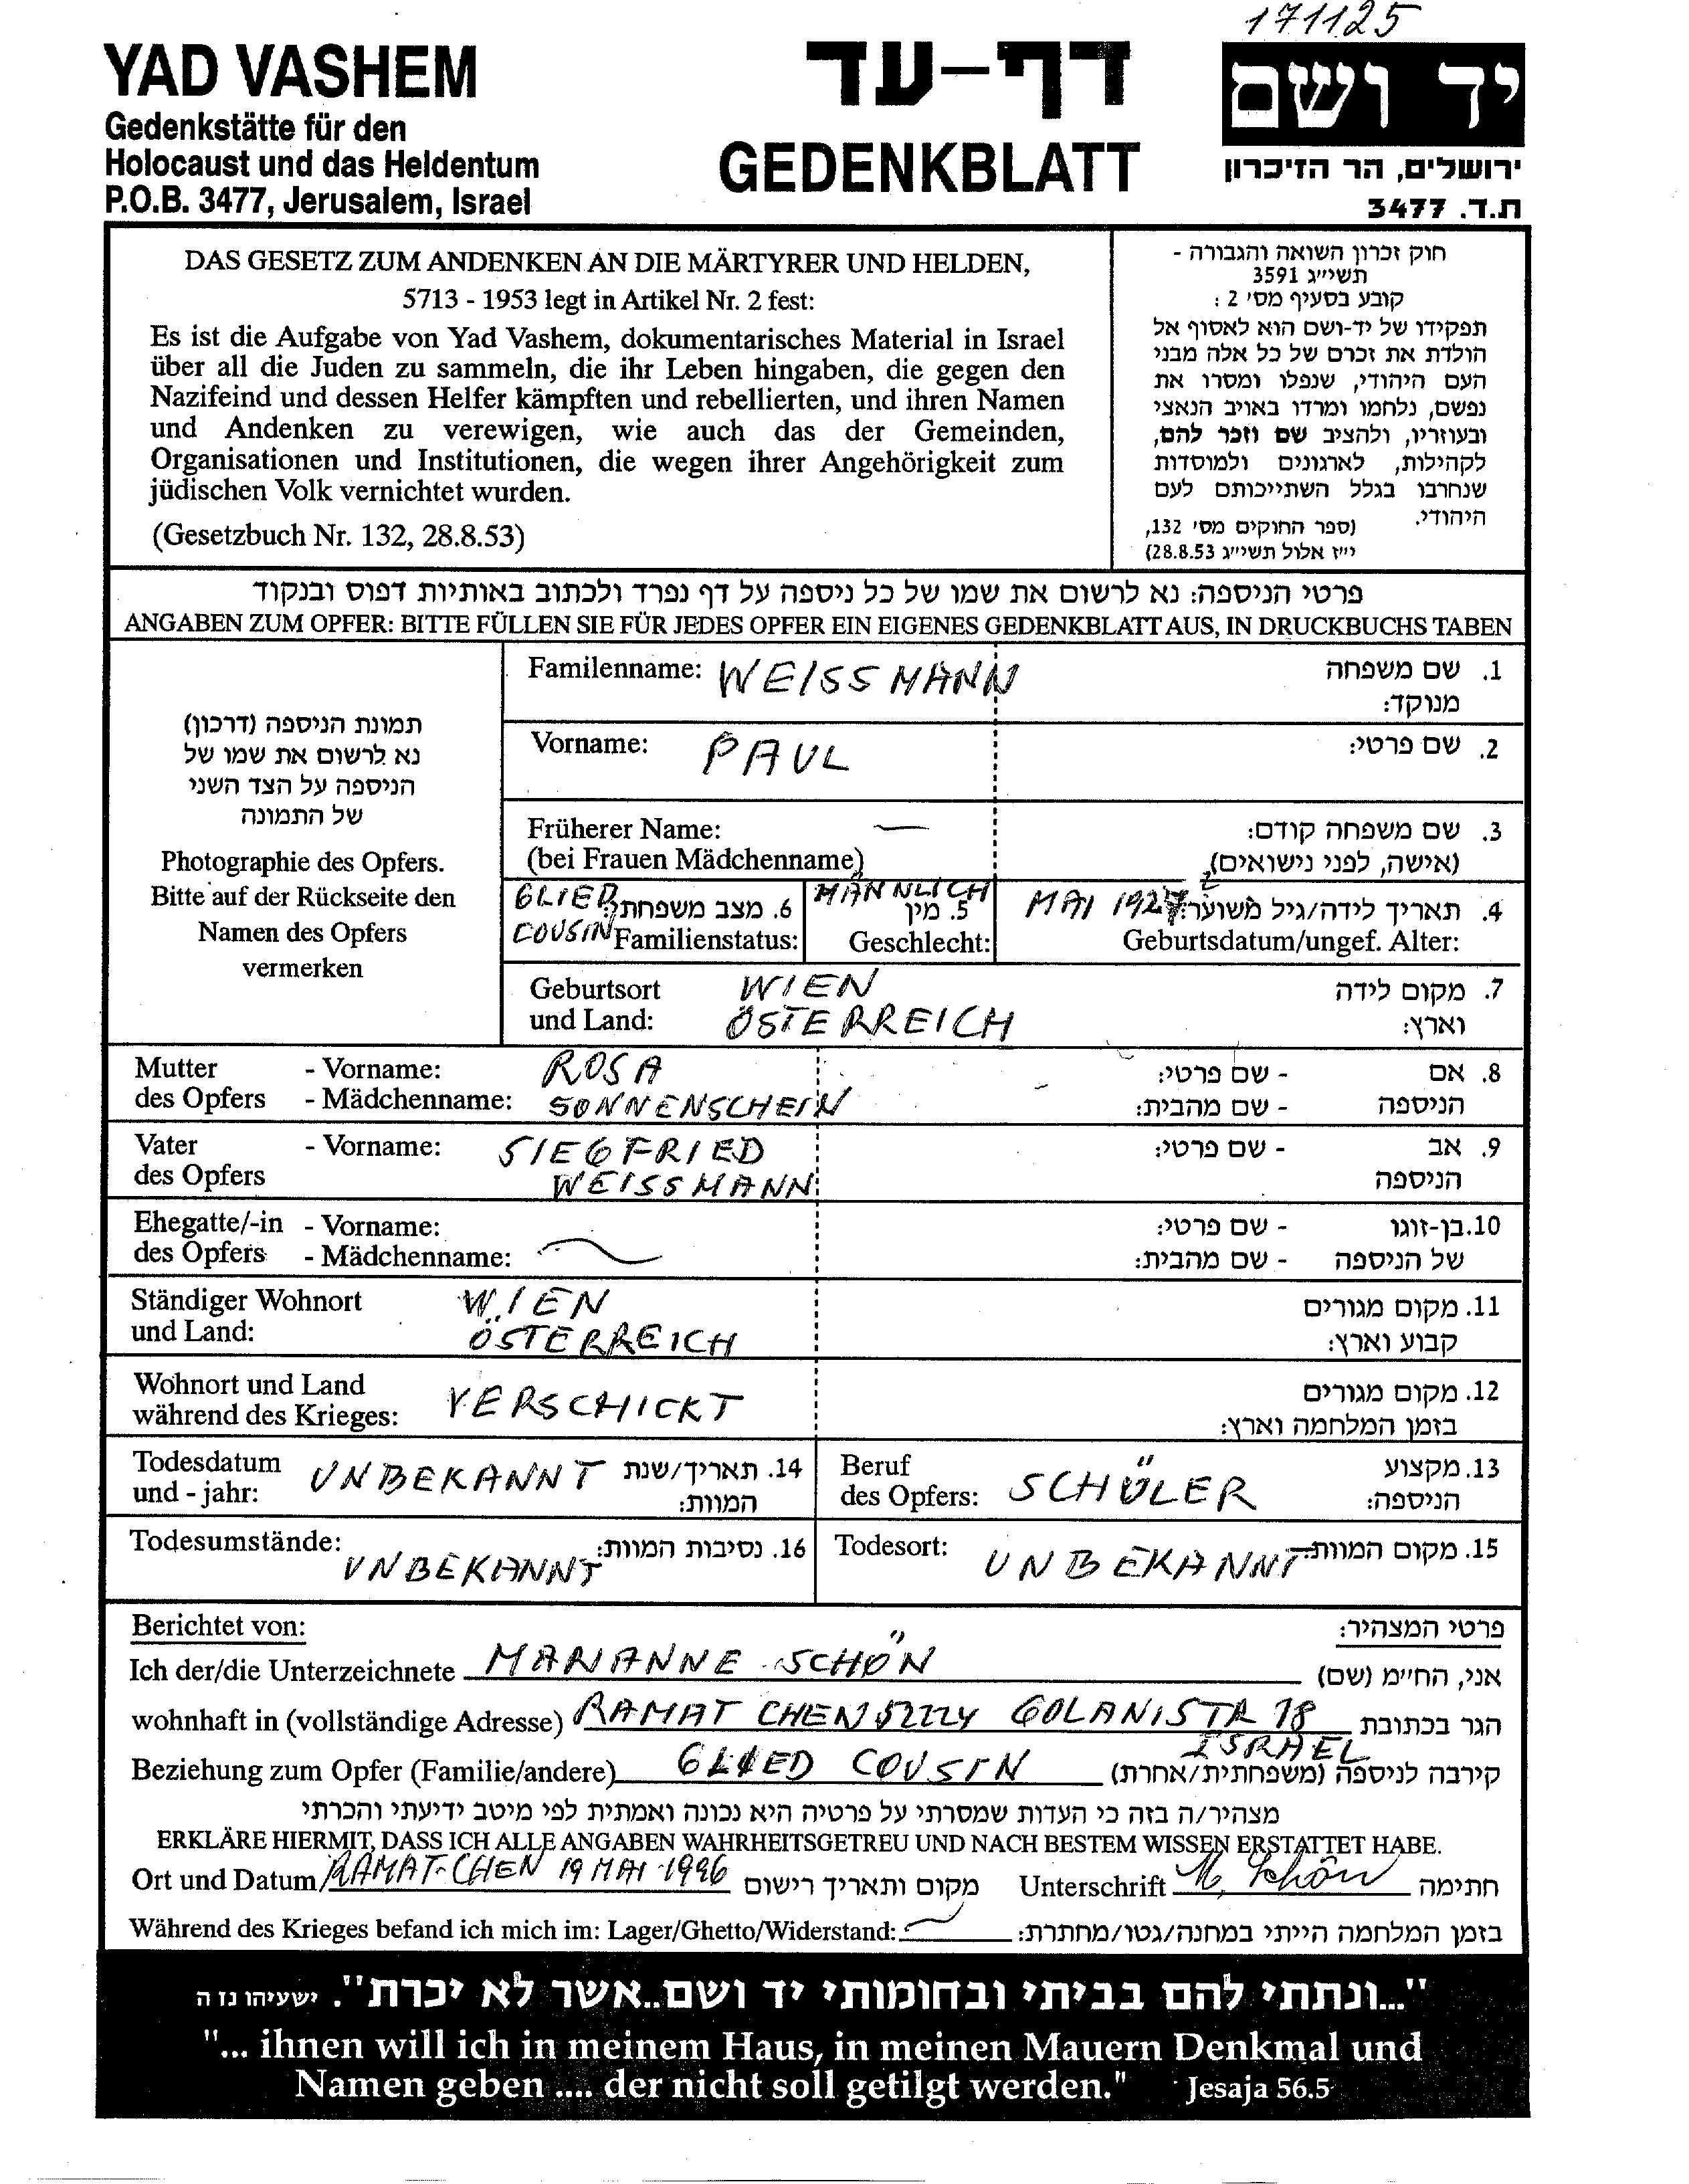 171125
YAD VASHEM
Gedenkstätte für den
Holocaust und das Heldentum
P.O.B. 3477, Jerusalem, Israel
דף-עד
GEDENKBLATT
יד ושם
ירושלים, הר הזיכרון
ת.ד. 3477
DAS GESETZ ZUM ANDENKEN AN DIE MÄRTYRER UND HELDEN,
5713 - 1953 legt in Artikel Nr. 2 fest:
Es ist die Aufgabe von Yad Vashem, dokumentarisches Material in Israel
über all die Juden zu sammeln, die ihr Leben hingaben, die gegen den
Nazifeind und dessen Helfer kämpften und rebellierten, und ihren Namen
und Andenken zu verewigen, wie auch das der Gemeinden,
Organisationen und Institutionen, die wegen ihrer Angehörigkeit zum
jüdischen Volk vernichtet wurden.
(Gesetzbuch Nr. 132, 28.8.53)
חוק זכרון השואה והגבורה -
תשי״ג 3591
קובע בסעיף מס׳ 2 :
תפקידו של יד-ושם הוא לאסוף אל
הולדת את זכרם של כל אלה מבני
העם היהודי, שנפלו ומסרו את
נפשם, נלחמו ומרדו באויב הנאצי
ובעוזריו, ולהציב שם וזכר להם,
לקהילות, לארגונים ולמוסדות
שנחרבו בגלל השתייכותם לעם
היהודי.
(ספר החוקים מס׳ 132,
י״ז אלול תשי״ג 28.8.53)
פרטי הניספה: נא לרשום את שמו של כל ניספה על דף נפרד ולכתוב באותיות דפוס ובנקוד
ANGABEN ZUM OPFER: BITTE FÜLLEN SIE FÜR JEDES OPFER EIN EIGENES GEDENKBLATT AUS, IN DRUCKBUCHS TABEN
תמונת הניספה (דרכון)
נא לרשום את שמו של
הניספה על הצד השני
של התמונה
Photographie des Opfers.
Bitte auf der Rückseite den
Namen des Opfers
vermerken
Familenname: WEISSMANN 1. שם משפחה
מנוקד:
Vorname: PAUL 2. שם פרטי:
Früherer Name: — 3. שם משפחה קודם:
(bei Frauen Mädchenname) (אישה, לפני נישואים)
GLIED 6. מצב משפחתי: MÄNNLICH 5. מין MAI 1927 4. תאריך לידה/גיל משוער:
COUSIN Familienstatus: Geschlecht: Geburtsdatum/ungef. Alter:
Geburtsort WIEN 7. מקום לידה
und Land: ÖSTERREICH וארץ:
Mutter - Vorname: ROSA - שם פרטי: 8. אם
des Opfers - Mädchenname: SONNENSCHEIN - שם מהבית: הניספה
Vater - Vorname: SIEGFRIED - שם פרטי: 9. אב
des Opfers WEISSMANN הניספה
Ehegatte/-in - Vorname: - שם פרטי: 10. בן-זוגו
des Opfers - Mädchenname: - שם מהבית: של הניספה
Ständiger Wohnort WIEN 11. מקום מגורים
und Land: ÖSTERREICH קבוע וארץ:
Wohnort und Land VERSCHICKT 12. מקום מגורים
während des Krieges: בזמן המלחמה וארץ:
Todesdatum UNBEKANNT 14. תאריך/שנת
und - jahr: המוות:
Beruf SCHÜLER 13. מקצוע
des Opfers: הניספה:
Todesumstände: UNBEKANNT 16. נסיבות המוות:
Todesort: UNBEKANNT 15. מקום המוות:
Berichtet von: פרטי המצהיר:
Ich der/die Unterzeichnete MARIANNE SCHÖN אני, החי״מ (שם)
wohnhaft in (vollständige Adresse) RAMAT CHEN 52224 GOLANISTR 18 הגר בכתובת
ISRAEL
Beziehung zum Opfer (Familie/andere) GLIED COUSIN קירבה לניספה (משפחתית/אחרת)
מצהיר/ה בזה כי העדות שמסרתי על פרטיה היא נכונה ואמתית לפי מיטב ידיעתי והכרתי
ERKLÄRE HIERMIT, DASS ICH ALLE ANGABEN WAHRHEITSGETREU UND NACH BESTEM WISSEN ERSTATTET HABE.
Ort und Datum RAMAT-CHEN 19 MAI 1996 מקום ותאריך רישום Unterschrift M. Schön חתימה
Während des Krieges befand ich mich im: Lager/Ghetto/Widerstand: בזמן המלחמה הייתי במחנה/גטו/מחתרת:
"...ונתתי להם בביתי ובחומותי יד ושם..אשר לא יכרת". ישעיהו נז ה
"... ihnen will ich in meinem Haus, in meinen Mauern Denkmal und
Namen geben .... der nicht soll getilgt werden." Jesaja 56.5